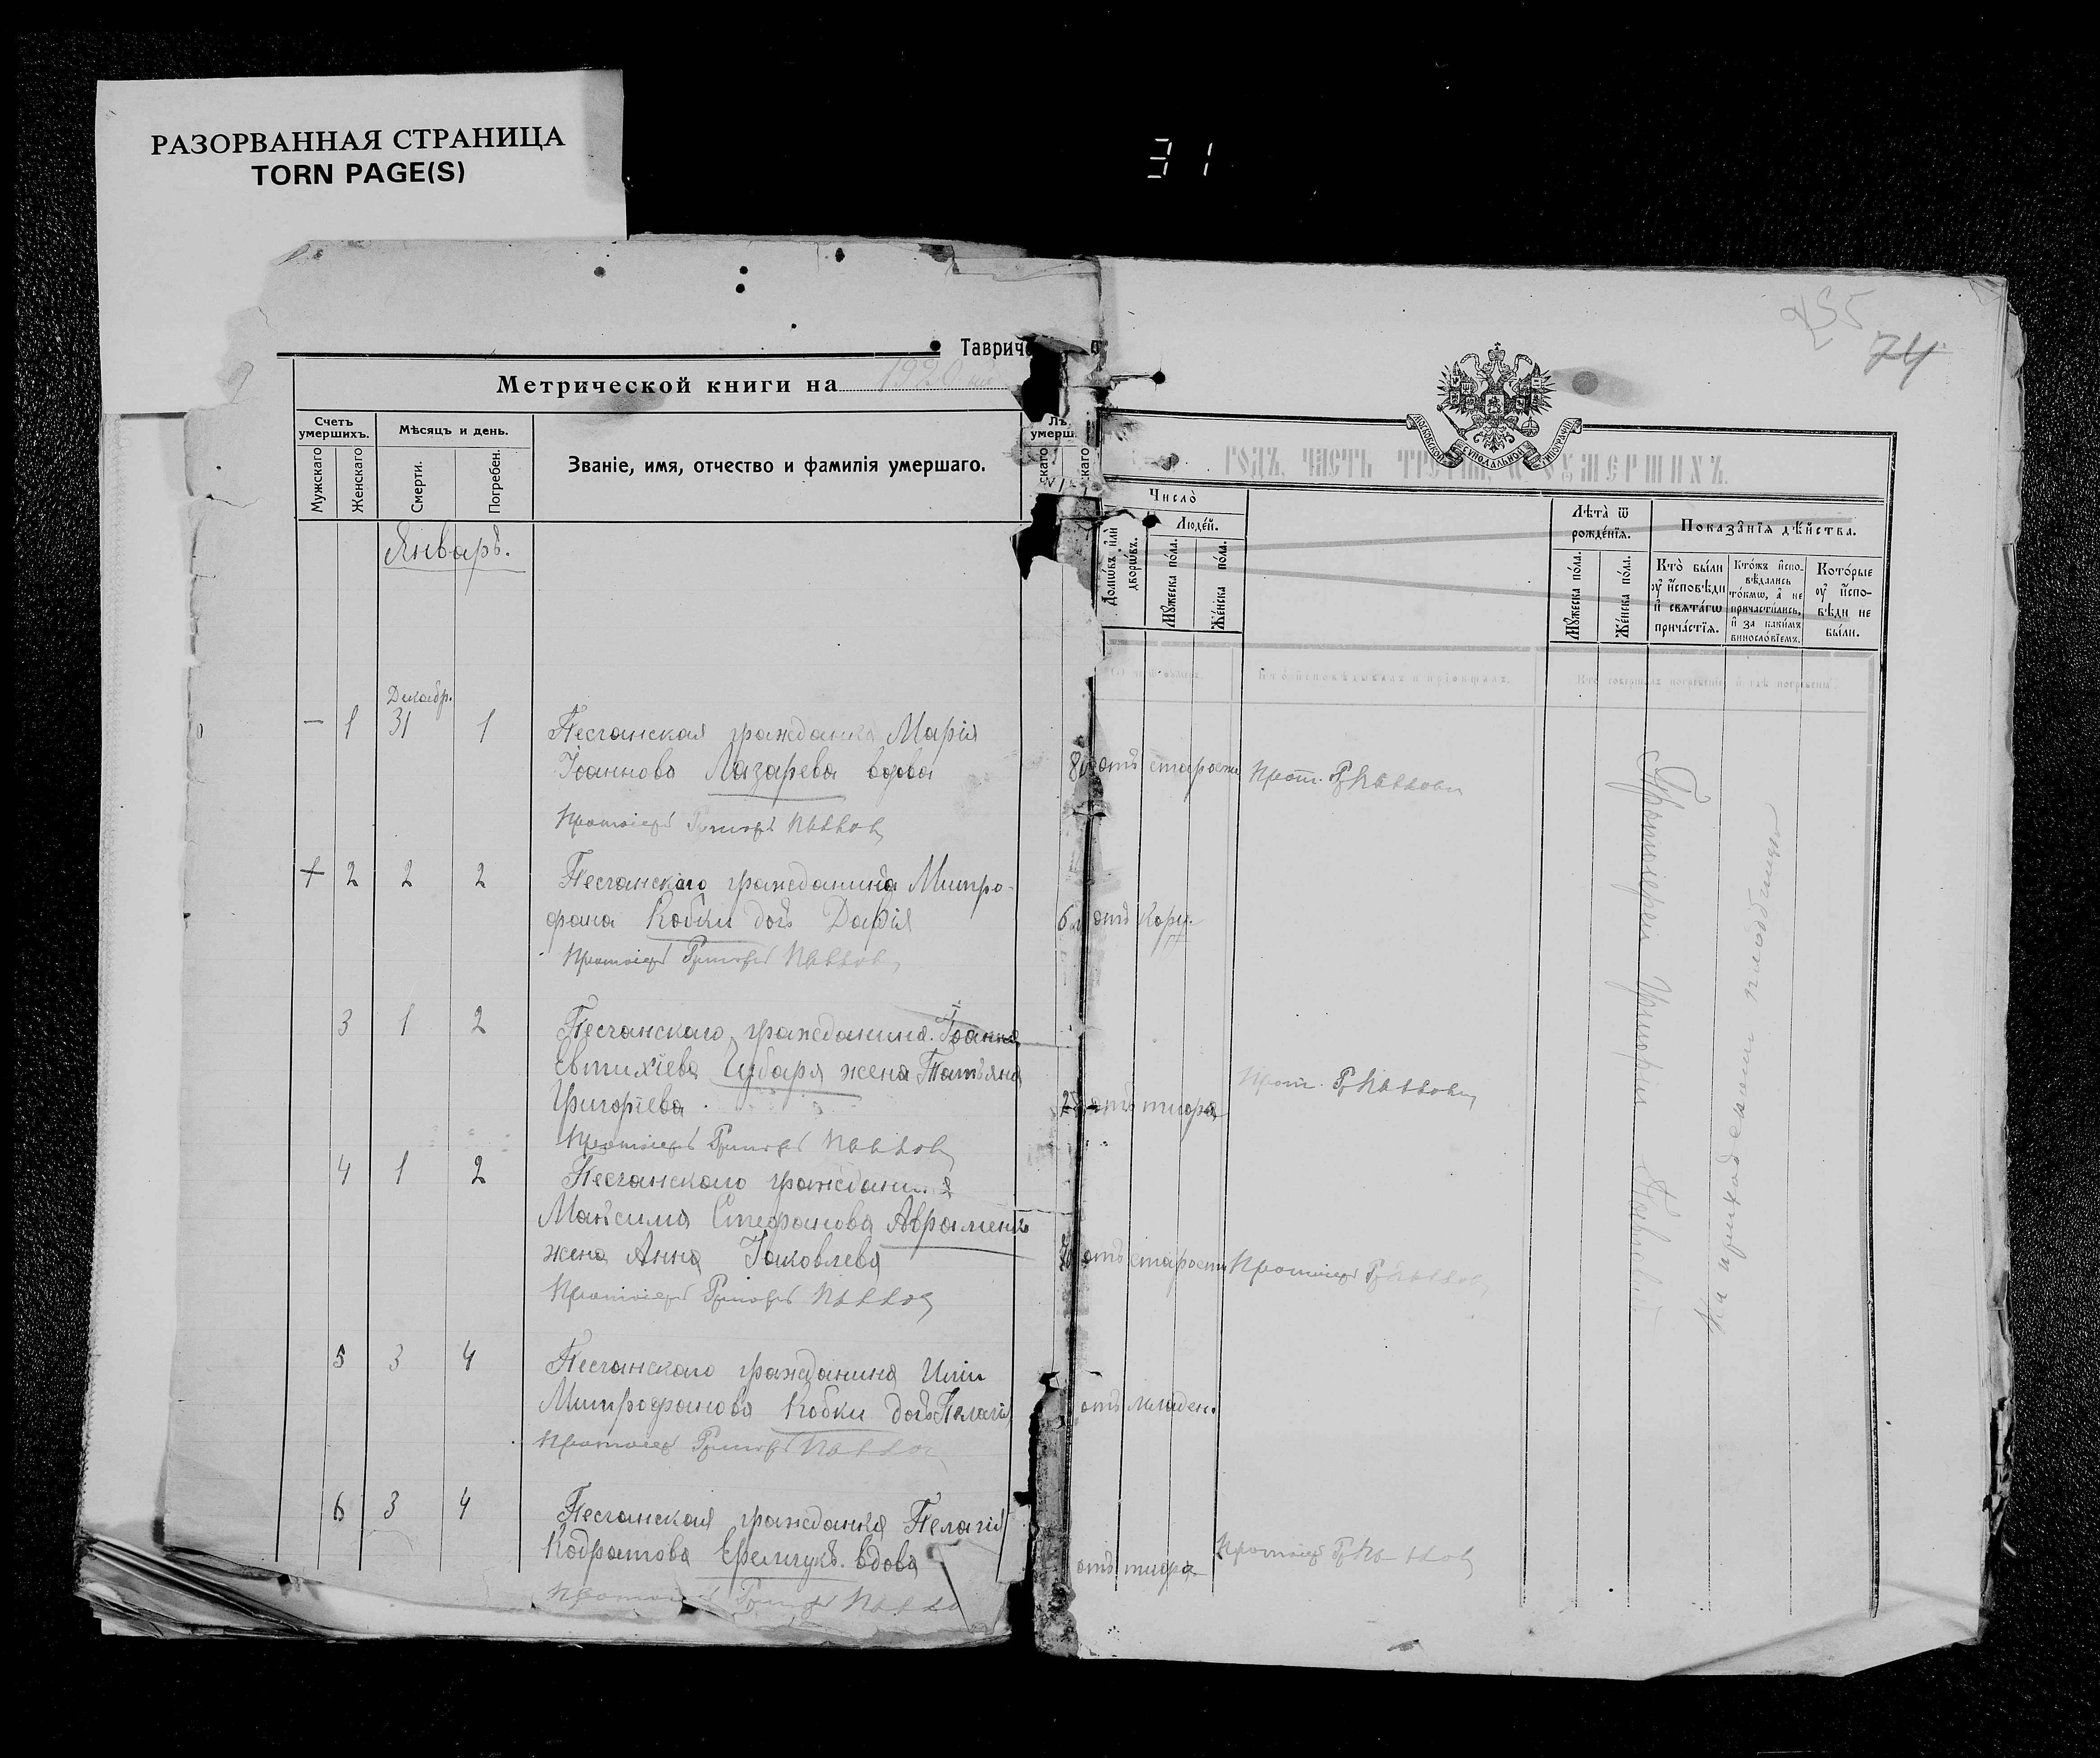 РАЗОРВАННАЯ СТРАНИЦА
TORN PAGE(S)
31
74
Тавриче
Метрической книги на 1920
Счетъ умершихъ.
Мужскаго
Женскаго
Мѣсяцъ и день.
Смерти.
Погребен.
Званіе, имя, отчество и фамилія умершаго.
Лѣ
умерш.
скаго
скаго
Январь.
Декабр.
— 1 31 1 Песчанская гражданка Марія
Іоаннова Лазарева вдова
Протоіерей Григорій Павлов
+ 2 2 2 Песчанскаго гражданина Митро-
фана Кобки дочь Дарія
Протоіерей Григорій Павлов
3 1 2 Песчанскаго гражданина Іоанна
Евтихіева Губаря жена Татьяна
Григорьева
Протоіерей Григорій Павлов
4 1 2 Песчанскаго граждан
Максима Стефанова Авраменко
жена Анна Іаковлева
Протоіерей Григорій Павлов
5 3 4 Песчанскаго гражданина Иліи
Митрофанова Кобки дочь Пелагія
Протоіерей Григорій Павлов
6 3 4 Песчанская гражданка Пелагія
Кодратова вдова
Протоіерей Григорій Павло
МОСКОВСКОЙ СѴНОДАЛЬНОЙ ТИПОГРАФІИ
ГОДЪ, ЧАСТЬ ТРЕТІѦ, Ѡ ОУМЕРШИХЪ.
Число̀
Домѡ́въ и҆лѝ дворѡ́въ.
Люде́й.
Мꙋ́жеска по́ла.
Же́нска по́ла.
Лѣ́та ѿ рожде́нїѧ.
Мꙋ́жеска по́ла.
Же́нска по́ла.
Показа̑нїѧ дѣ́йства.
Кто̀ бы́ли оу҆ и҆́сповѣди и҆ свѧта́гѡ прича́стїѧ.
Кто́жъ и҆спо-
вѣ́дались
то́кмѡ, а҆ не
причасти́лись,
и҆ за каки́мъ
винословїемъ.
Кото́рые оу҆ и҆́спо-
вѣди не
бы́ли.
Кто̀ и҆сповѣдывалъ и҆ прїѡбщалъ.
Кто̀ совершалъ погребенїе и҆ гдѣ̀ погребены̀.
отъ старости Прот. Гр Павловъ
отъ
отъ тифа Прот. Гр Павловъ
отъ старости Протоіерей Гр Павлов
отъ младен.
отъ тифа Протоіерей Гр Павлов
Протоіерей Григорій Павлов
На приходском кладбище